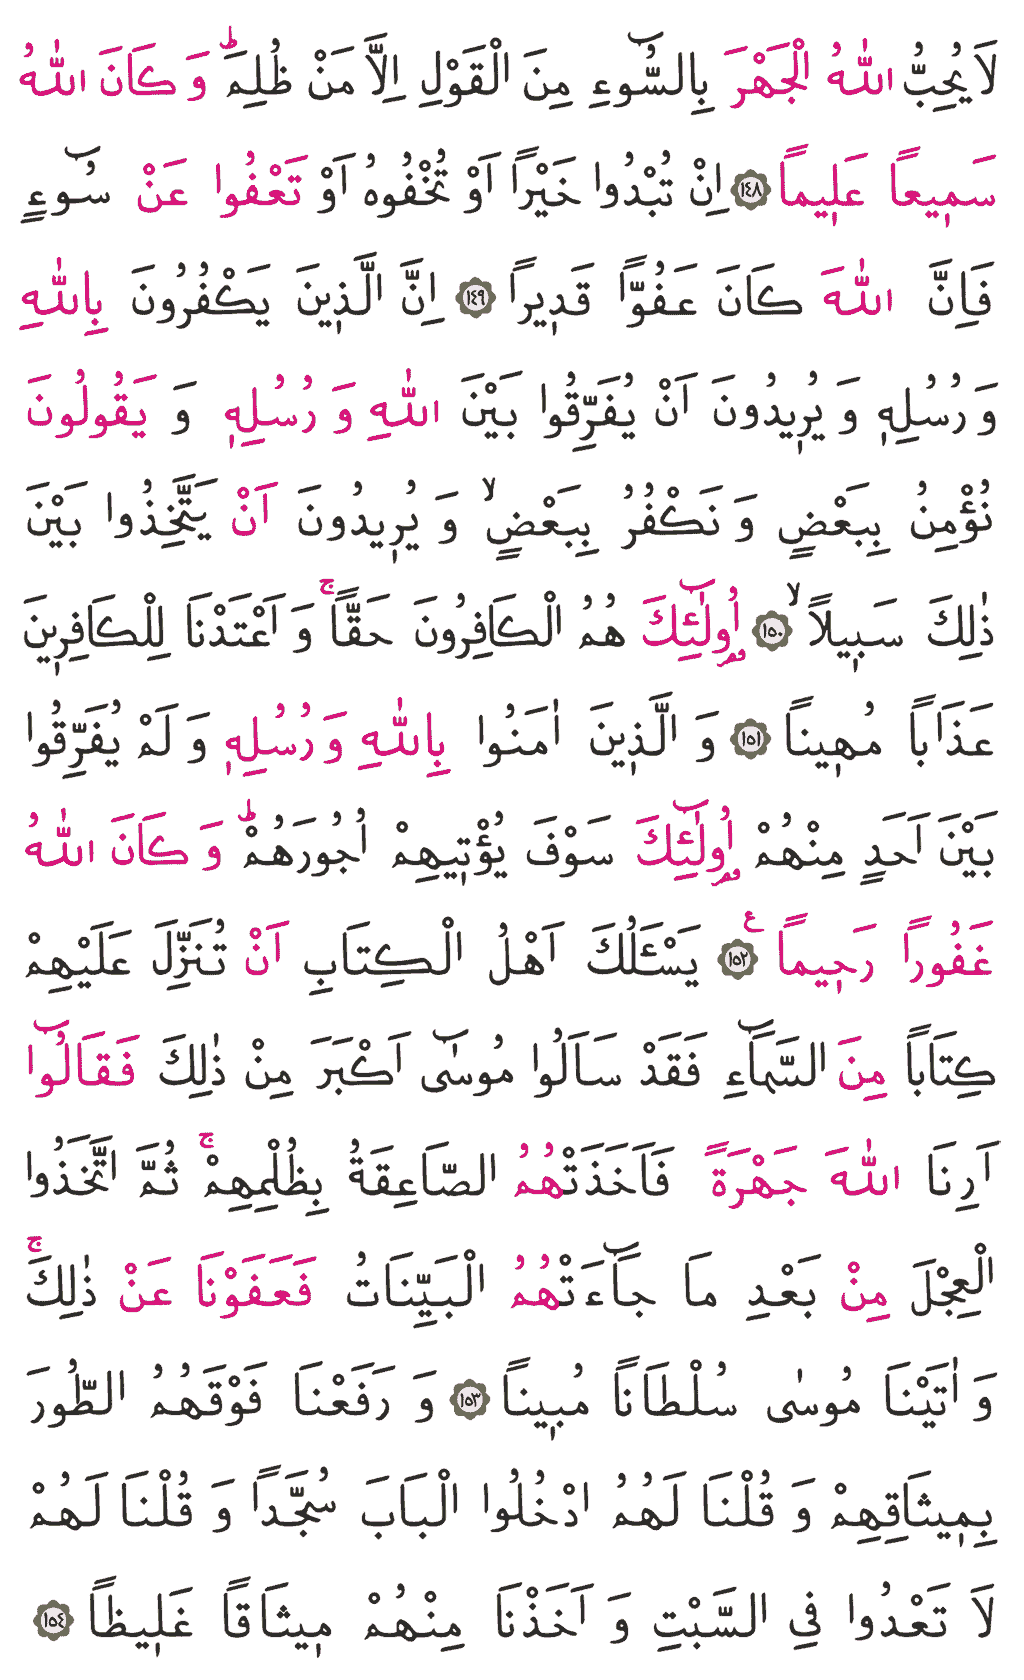 لَا يُحِبُّ اللّٰهُ الْجَهْرَ بِالسُّٓوءِ مِنَ الْقَوْلِ اِلَّا مَنْ ظُلِمَؕ وَ كَانَ اللّٰهُ
سَمٖيعاً عَلٖيماً ﴿١٤٨﴾ اِنْ تُبْدُوا خَيْراً اَوْ تُخْفُوهُ اَوْ تَعْفُوا عَنْ سُٓوءٍ
فَاِنَّ اللّٰهَ كَانَ عَفُوًّا قَدٖيراً ﴿١٤٩﴾ اِنَّ الَّذٖينَ يَكْفُرُونَ بِاللّٰهِ
وَ رُسُلِهٖ وَ يُرٖيدُونَ اَنْ يُفَرِّقُوا بَيْنَ اللّٰهِ وَ رُسُلِهٖ وَ يَقُولُونَ
نُؤْمِنُ بِبَعْضٍ وَ نَكْفُرُ بِبَعْضٍۙ وَ يُرٖيدُونَ اَنْ يَتَّخِذُوا بَيْنَ
ذٰلِكَ سَبٖيلاًۙ ﴿١٥٠﴾ اُو۬لٰٓئِكَ هُمُ الْكَافِرُونَ حَقًّاۚ وَ اَعْتَدْنَا لِلْكَافِرٖينَ
عَذَاباً مُهٖيناً ﴿١٥١﴾ وَ الَّذٖينَ اٰمَنُوا بِاللّٰهِ وَ رُسُلِهٖ وَ لَمْ يُفَرِّقُوا
بَيْنَ اَحَدٍ مِنْهُمْ اُو۬لٰٓئِكَ سَوْفَ يُؤْتٖيهِمْ اُجُورَهُمْؕ وَ كَانَ اللّٰهُ
غَفُوراً رَحٖيماًࣖ ﴿١٥٢﴾ يَسْـَٔلُكَ اَهْلُ الْكِتَابِ اَنْ تُنَزِّلَ عَلَيْهِمْ
كِتَاباً مِنَ السَّمَٓاءِ فَقَدْ سَاَلُوا مُوسٰٓى اَكْبَرَ مِنْ ذٰلِكَ فَقَالُٓوا
اَرِنَا اللّٰهَ جَهْرَةً فَاَخَذَتْهُمُ الصَّاعِقَةُ بِظُلْمِهِمْۚ ثُمَّ اتَّخَذُوا
الْعِجْلَ مِنْ بَعْدِ مَا جَٓاءَتْهُمُ الْبَيِّنَاتُ فَعَفَوْنَا عَنْ ذٰلِكَۚ
وَ اٰتَيْنَا مُوسٰى سُلْطَاناً مُبٖيناً ﴿١٥٣﴾ وَ رَفَعْنَا فَوْقَهُمُ الطُّورَ
بِمٖيثَاقِهِمْ وَ قُلْنَا لَهُمُ ادْخُلُوا الْبَابَ سُجَّداً وَ قُلْنَا لَهُمْ
لَا تَعْدُوا فِى السَّبْتِ وَ اَخَذْنَا مِنْهُمْ مٖيثَاقاً غَلٖيظاً ﴿١٥٤﴾